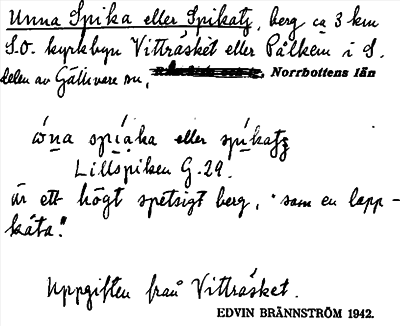 Unna Spika eller Spikatj, berg ca 3 km
S.O. kyrkbyn Vitträsket eller Pålkem i S.
delen av Gällivare sn, Norrbottens län
ὠna spiaka eller spikatj
Lillspiken G-29.
är ett högt spetsigt berg, "som en lapp-
kåta."
Uppgiften från Vitträsket.
EDVIN BRÄNNSTRÖM 1942.